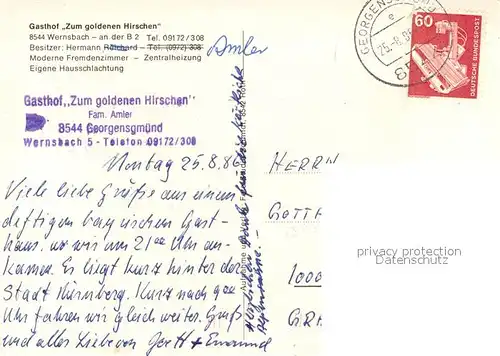 Gasthof „Zum goldenen Hirschen"
8544 Wernsbach – an der B 2 Tel. 09172/308
Besitzer: Hermann Reichard – Tel. (0972) 308
Amler
Moderne Fremdenzimmer – Zentralheizung
Eigene Hausschlachtung
Gasthof „Zum goldenen Hirschen"
Fam. Amler
8544 Georgensgmünd
Wernsbach 5 - Telefon 09172/308
Montag 25.8.86
Viele liebe Grüße aus einem
deftigen bayrischen Gast-
haus. wo wir um 21 00 Uhr an-
kamen. Es liegt kurz hinter der
Stadt Nürnberg. Kurz nach 9 00
Uhr fahren wir gleich weiter. Gruß
und alles Liebe von Gert +
60
DEUTSCHE BUNDESPOST
HERRN
GOTTF
1000
GRA
privacy protection
watermark